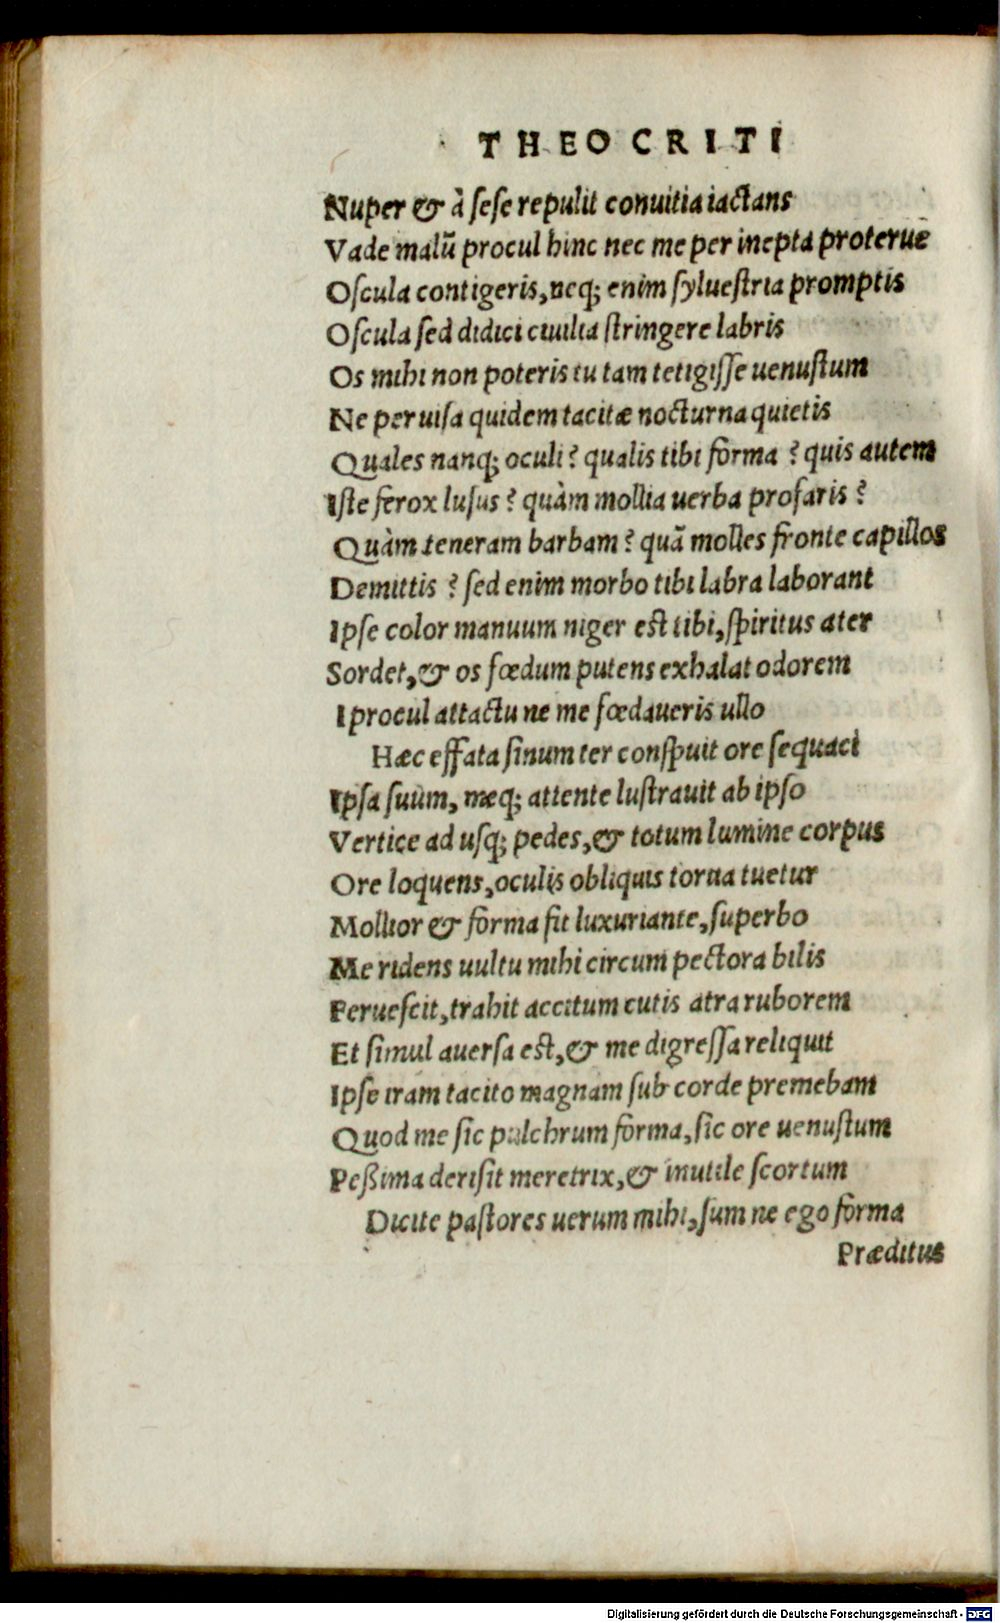 THEOCRITI
Nuper & à sese repulit conuitia iactans
Vade malũ procul hinc nec me per inepta proteruē
Oscula contigeris, neq; enim syluestria promptis
Oscula sed didici ciuilia stringere labris
Os mihi non poteris tu tam tetigisse uenustum
Ne per uisa quidem tacitæ nocturna quietis
Quales nanq; oculi? qualis tibi forma? quis autem
Iste ferox lusus? quàm mollia uerba profaris?
Quàm teneram barbam? quã molles fronte capillos
Demittis? sed enim morbo tibi labra laborant
Ipse color manuum niger est tibi, spiritus ater
Sordet, & os fœdum putens exhalat odorem
I procul attactu ne me fœdaueris ullo
Hæc effata sinum ter conspuit ore sequaci
Ipsa suum, meq; attente lustrauit ab ipso
Vertice ad usq; pedes, & totum lumine corpus
Ore loquens, oculis obliquis torua tuetur
Mollior & forma fit luxuriante, superbo
Me ridens uultu mihi circum pectora bilis
Feruescit, trahit accitum cutis atra ruborem
Et simul auersa est, & me digressa reliquit
Ipse iram tacito magnam sub corde premebam
Quod me sic pulchrum forma, sic ore uenustum
Peßima derisit meretrix, & inutile scortum
Dicite pastores uerum mihi, sum ne ego forma
Præditus
Digitalisierung gefördert durch die Deutsche Forschungsgemeinschaft - DFG